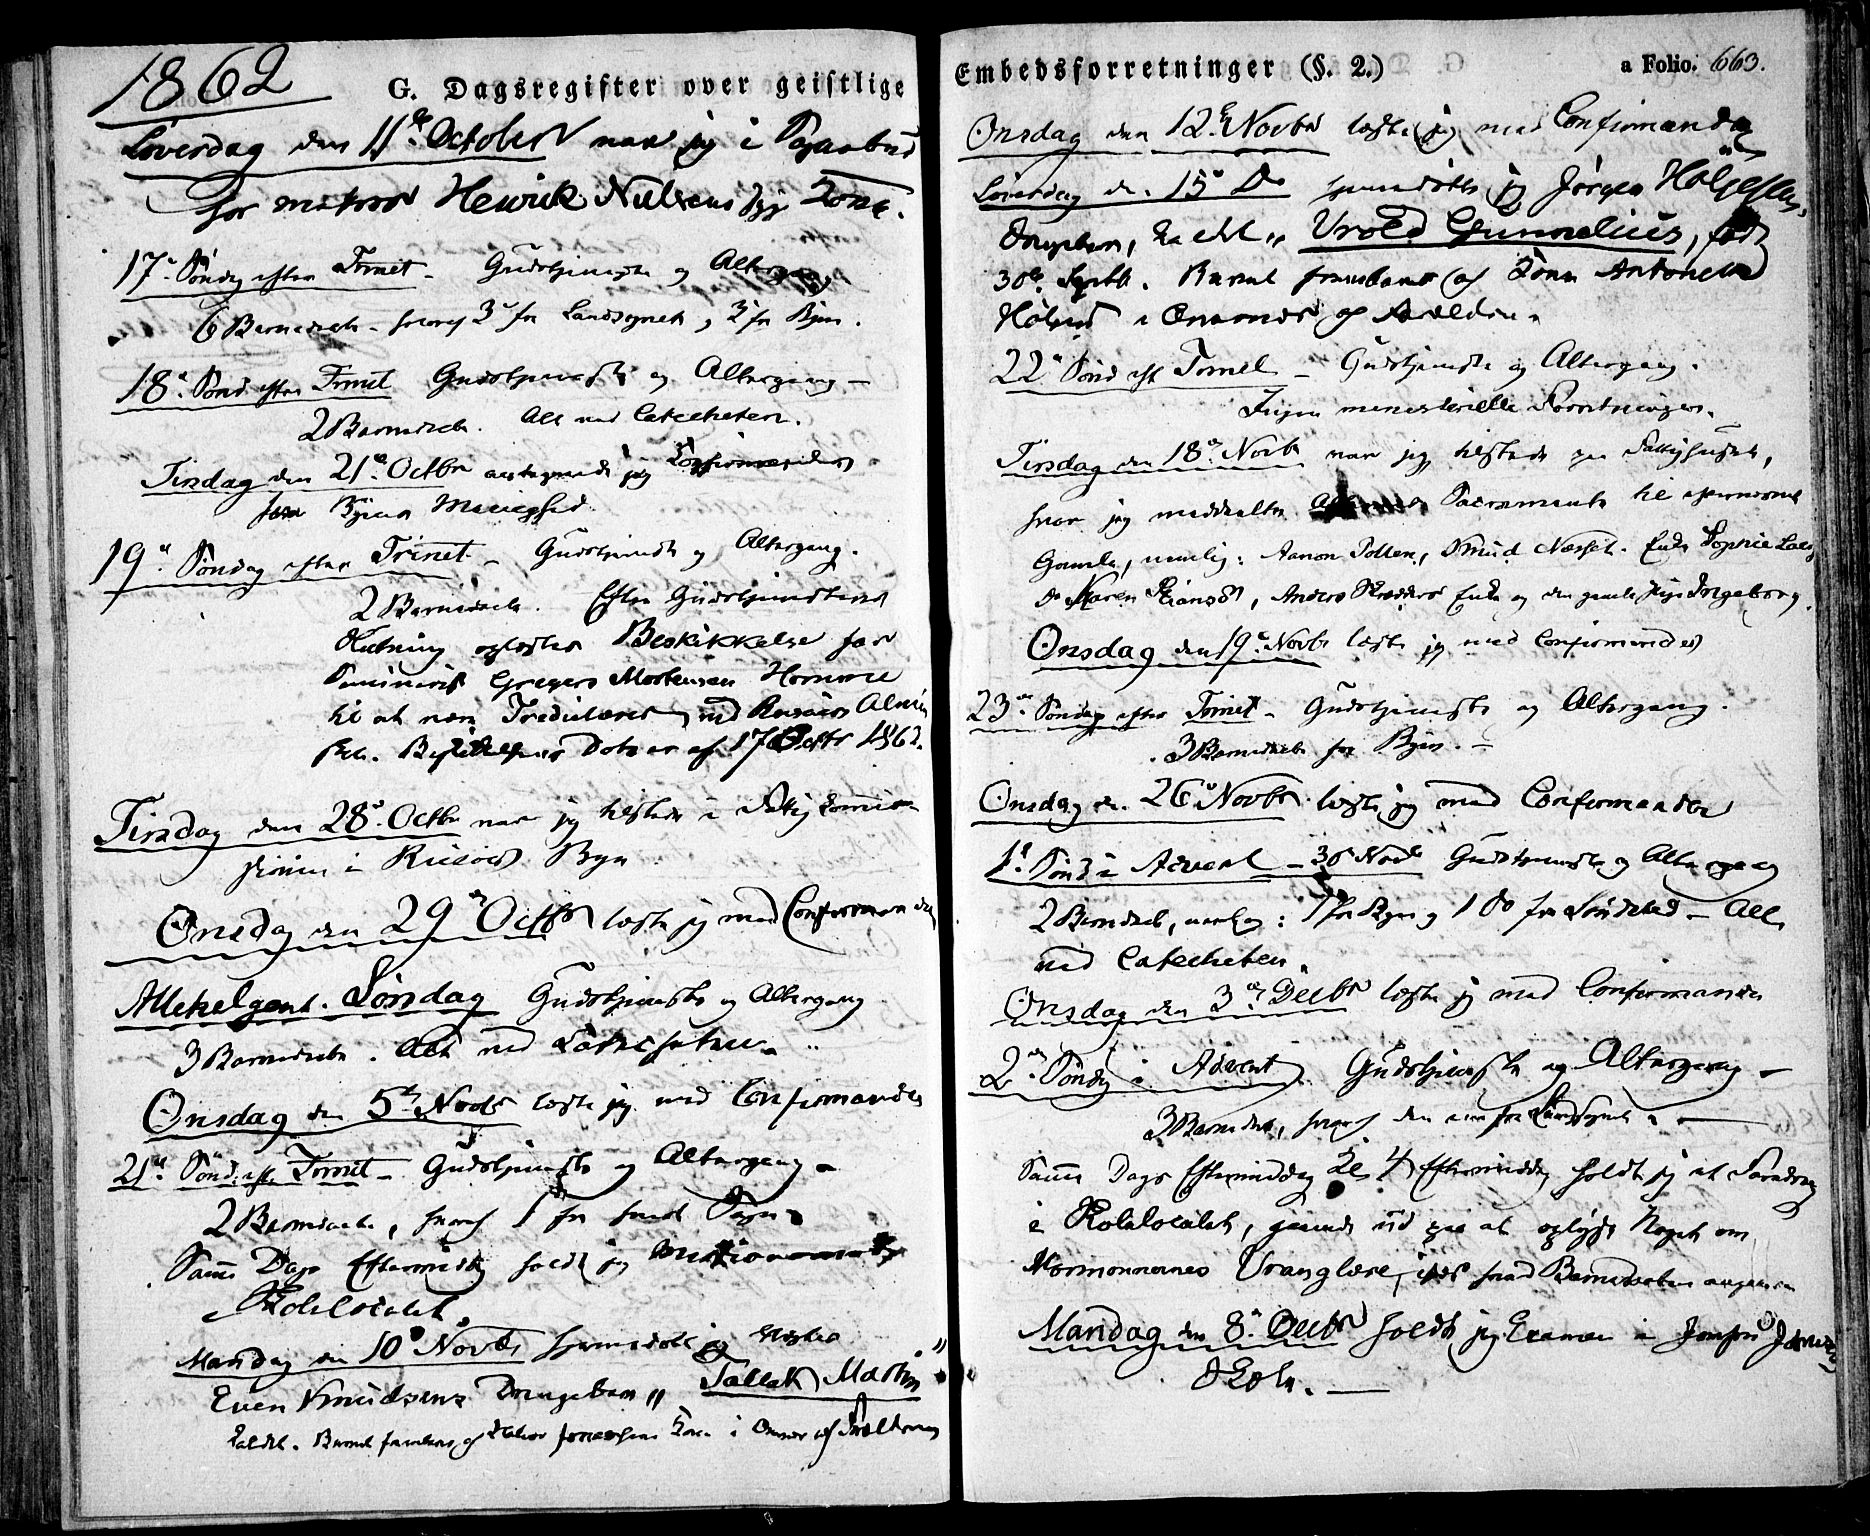 1862
G. Dagsregister over geistlige
Løverdag den 11te October var jeg i Sognebud
for Henrik Nielsens syge Kone.
17de Sønd efter Trinit - Gudstjeneste og Altergang
6 Barnedaab - hvoraf 3 fra Landsognet, 3 fra Byen.
18de Sønd efter Trinit Gudstjeneste og Altergang -
2 Barnedaab. Alt ved Catecheten.
Tirsdag den 21de Octbr antegnede jeg Confirmander
fra Byens Menighed
19de Søndag efter Trinit - Gudstjeneste og Altergang.
2 Barnedaab. Efter Gudstjenestens
Slutning oplæstes Beskikkelse for
Seminarist Gregers Mortensen Homme
til at være ved Risøers Almue
Dat. er af 17 Octbr 1862.
Tirsdag den 28de Octbr var jeg tilstede i Fattigcommis-
sionen i Risøer Bye
Onsdag den 29de Octbr læste jeg med Confirmander
Allehelgens Søndag Gudstjeneste og Altergang
3 Barnedaab. Alt ved Catecheten.
Onsdag den 5te Novbr læste jeg med Confirmander
21de Sønd. eft. Trinit - Gudstjeneste og Altergang
2 Barnedaab, hvoraf 1 fra Sogn
Samme Dags Eftermiddag holdt jeg
Skolelocalet.
Mandag den 10de Novbr hjemmedøbte jeg
Even Knudsens Drengebarn " Tallak Martin "
kaldet. Barnet frembaaret af Kone i
Embedsforretninger (§. 2.)
a Folio. 663.
Onsdag den 12te Novbr læste jeg med Confirmander
Løverdag den 15de Do hjemmedøbte jeg Jørgen
Drengebarn, kaldet " Vrold Gunnelius, født
30te Septb. Barnet frembaaret af Antonette
i
22de Sønd eft Trinit - Gudstjeneste og Altergang.
Ingen ministerielle Forretninger.
Tirsdag den 18de Novbr var jeg tilstede paa Fattighuset,
hvor jeg meddeelte Alterens Sacramente til efternævnte
Gamle, nemlig: Aanon, Knud Næsset. Enke Sophie
Do Maren, Anders Enke og den gamle Pige Ingeborg.
Onsdag den 19de Novbr læste jeg med Confirmander
23de Søndag efter Trinit - Gudstjeneste og Altergang.
3 Barnedaab fra Byen. -
Onsdag den 26de Novbr læste jeg med Confirmander
1ste Sønd i Advent - 30 Novbr Gudstjeneste og Altergang
2 Barnedaab, nemlig: 1 fra Byen og 1 Do fra Søndeled - Alt
ved Catecheten.
Onsdag den 3de Decbr læste jeg med Confirmander
2den Søndag i Advent. Gudstjeneste og Altergang -
3 Barnedaab, hvoraf den ene fra Landsognet. -
Samme Dags Eftermiddag Kl 4 Eftermiddag holdt jeg et Foredrag
i Skolelocalet, gaaende ud paa at oplyse Noget om
Mormonernes Vranglære, hvad Barnedaaben angaaer
Mandag den 8de Decbr holdt jeg Examen i Jomfru
Skole. -